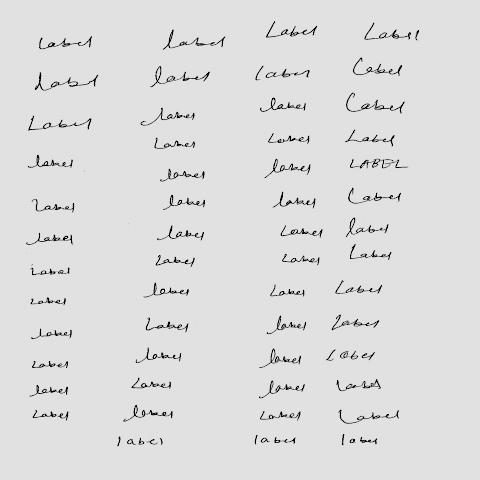 Label label Label Label
Label label Label Label
Label label label Label
Label Label Label
label label label LABEL
Label label label Label
label label Label label
Label Label Label Label
Label label Label Label
label Label label Label
Label label label Label
label Label label Label
Label label Label Label
label label label